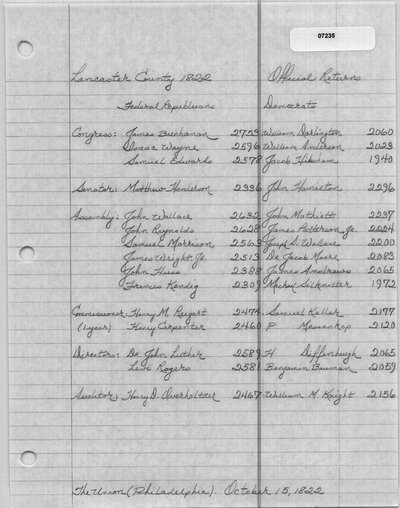 07235
Lancaster County 1822 Official Returns
Federal Republicans Democrats
Congress: James Buchanan 2753 William Darlington 2060
Isaac Wayne 2596 William Anderson 2023
Samuel Edwards 2578 Jacob Hibshman 1940
Senator: Matthew Henderson 2336 John Hamilton 2296
Assembly: John Wallace 2632 John Mathiott 2237
John Reynolds 2628 James Patterson, Jr. 2224
Samuel Morrison 2563 S. Wallace 2200
James Wright Jr. 2513 Dr. Jacob Moore 2083
John Hess 2388 James Andrews 2065
Francis Kendig 2309 Mickay 1972
Commissioner: Henry M. Reigart 2474 Samuel Keller 2177
(1 year) Henry Carpenter 2460 P 2120
Directors: Dr. John Luther 2589 H Diffenbaugh 2065
Levi Rogers 2581 Benjamin Bauman 2059
Auditor: Henry D. Overholtzer 2467 William M. Knight 2156
The Union (Philadelphia). October 15, 1822